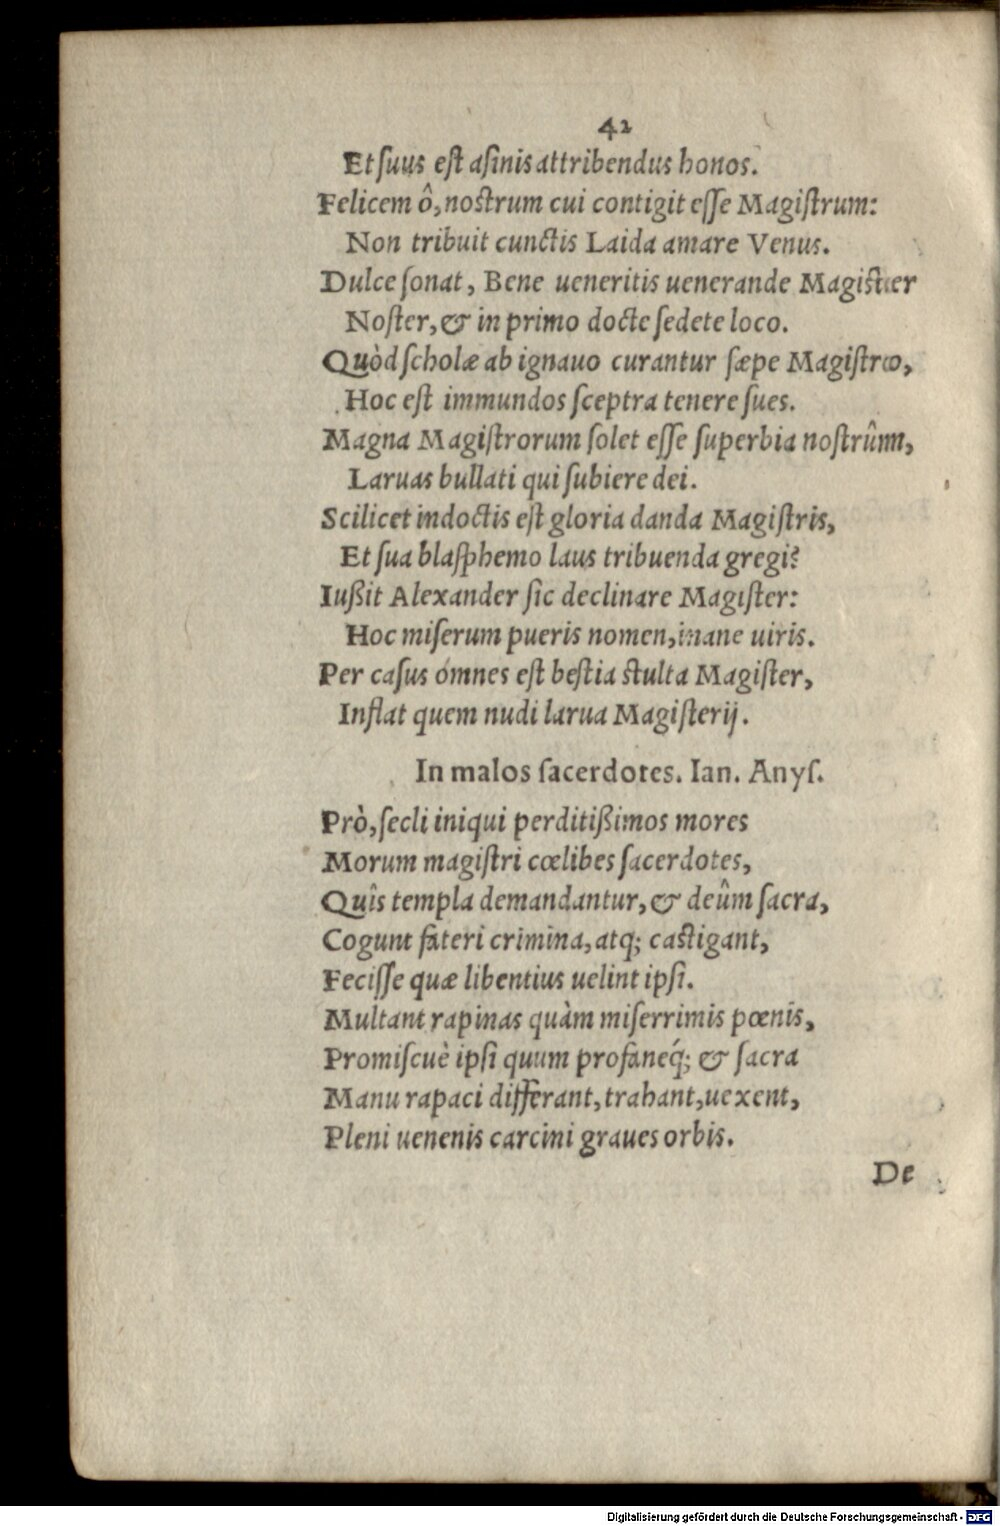 42
Et ſuus eſt aſinis attribendus honos.
Felicem ô, noſtrum cui contigit eſſe Magiſtrum:
Non tribuit cunctis Laida amare Venus.
Dulce ſonat, Bene ueneritis uenerande Magiſter
Noſter, & in primo docte ſedete loco.
Quòd ſcholæ ab ignauo curantur ſæpe Magiſtro,
Hoc eſt immundos ſceptra tenere ſues.
Magna Magiſtrorum ſolet eſſe ſuperbia noſtrûm,
Laruas bullati qui ſubiere dei.
Scilicet indoctis eſt gloria danda Magiſtris,
Et ſua blaſphemo laus tribuenda gregi?
Iußit Alexander ſic declinare Magiſter:
Hoc miſerum pueris nomen, inane uiris.
Per caſus omnes eſt beſtia ſtulta Magiſter,
Inflat quem nudi larua Magiſterij.
In malos ſacerdotes. Ian. Anyſ.
Prò, ſecli iniqui perditißimos mores
Morum magiſtri cœlibes ſacerdotes,
Quîs templa demandantur, & deûm ſacra,
Cogunt fateri crimina, atq; caſtigant,
Feciſſe quæ libentius uelint ipſi.
Multant rapinas quàm miſerrimis pœnis,
Promiſcuè ipſi quum profaneq́; & ſacra
Manu rapaci differant, trahant, uexent,
Pleni uenenis carcini graues orbis.
De
Digitalisierung gefördert durch die Deutsche Forschungsgemeinschaft - DFG